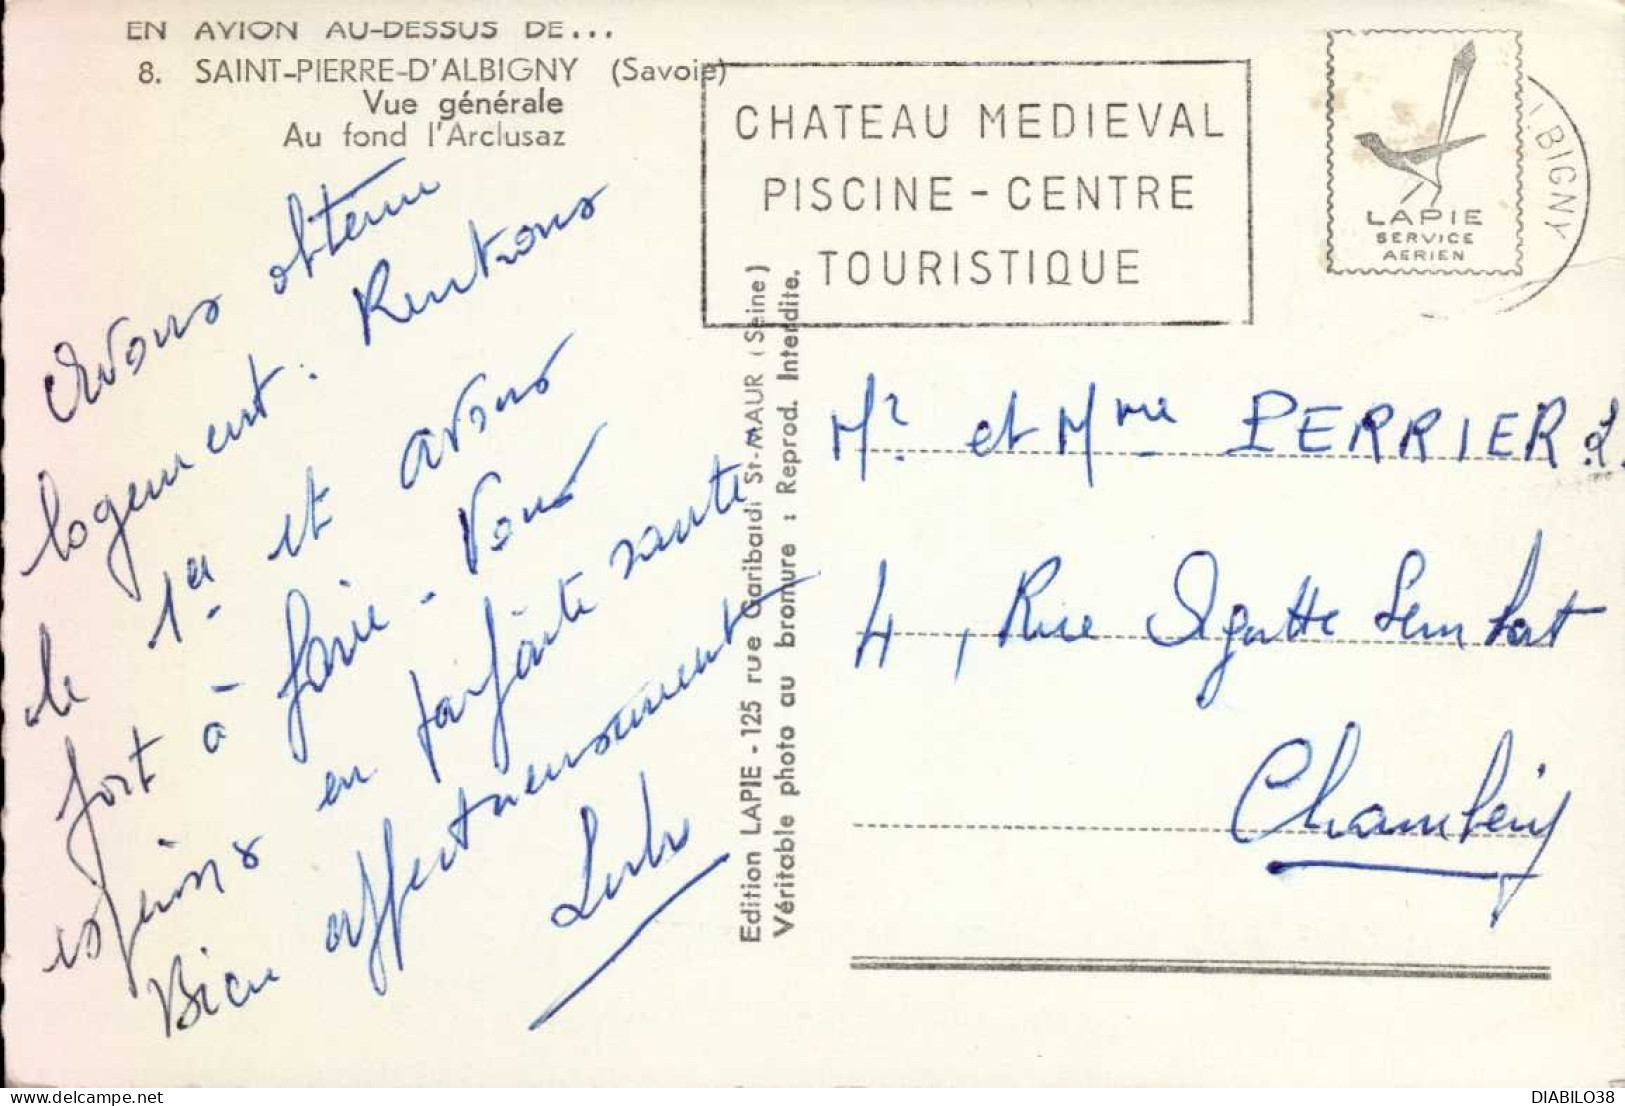 EN AVION AU-DESSUS DE...
8. SAINT-PIERRE-D'ALBIGNY (Savoie)
Vue générale
Au fond l'Arclusaz
CHATEAU MEDIEVAL
PISCINE - CENTRE
TOURISTIQUE
LAPIE
SERVICE
AERIEN
LBIGNY
Avons obtenu
logement. Rentrons
le 1er et avons
fort à faire - Vous
espérons en parfaite santé
Bien affectueusement
Edition LAPIE - 125 rue Garibaldi St-MAUR (Seine)
Véritable photo au bromure : Reprod. Interdite.
Mr et Mme PERRIER L.
4, Rue Agutte Sembat
Chambéry
DIABILO38